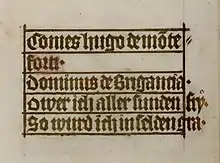 Comes hugo de mōte
forti·
Dominus de Brigantia·
O wer ich aller sunden fry·
So wurd ich in selden gra·